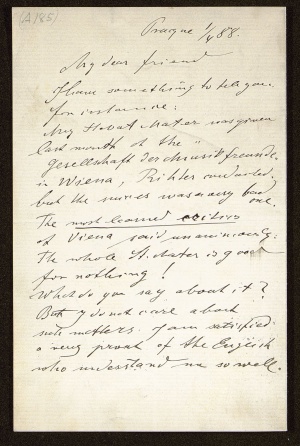 (A185)
Prague 1/4 88.
My dear friend
I have something to tell you.
For instance:
My Stabat Mater was given
last month at the "
Gesellschaft der Musikfreunde,
in Wiena, Richter conducted,
but the was a very bad
one.
The most learned critics
of Viena said unanimously:
The whole St. Mater is good
for nothing!
What do you say about it?
But I do not care about
such matters. I am satisfied
a very proud of the English
who understand me so well.